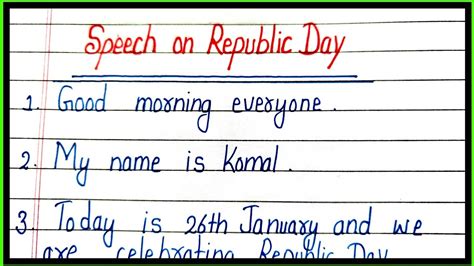 Speech on Republic Day
1. Good morning everyone.
2. My name is Komal.
3. Today is 26th January and we
are celebrating Republic Day